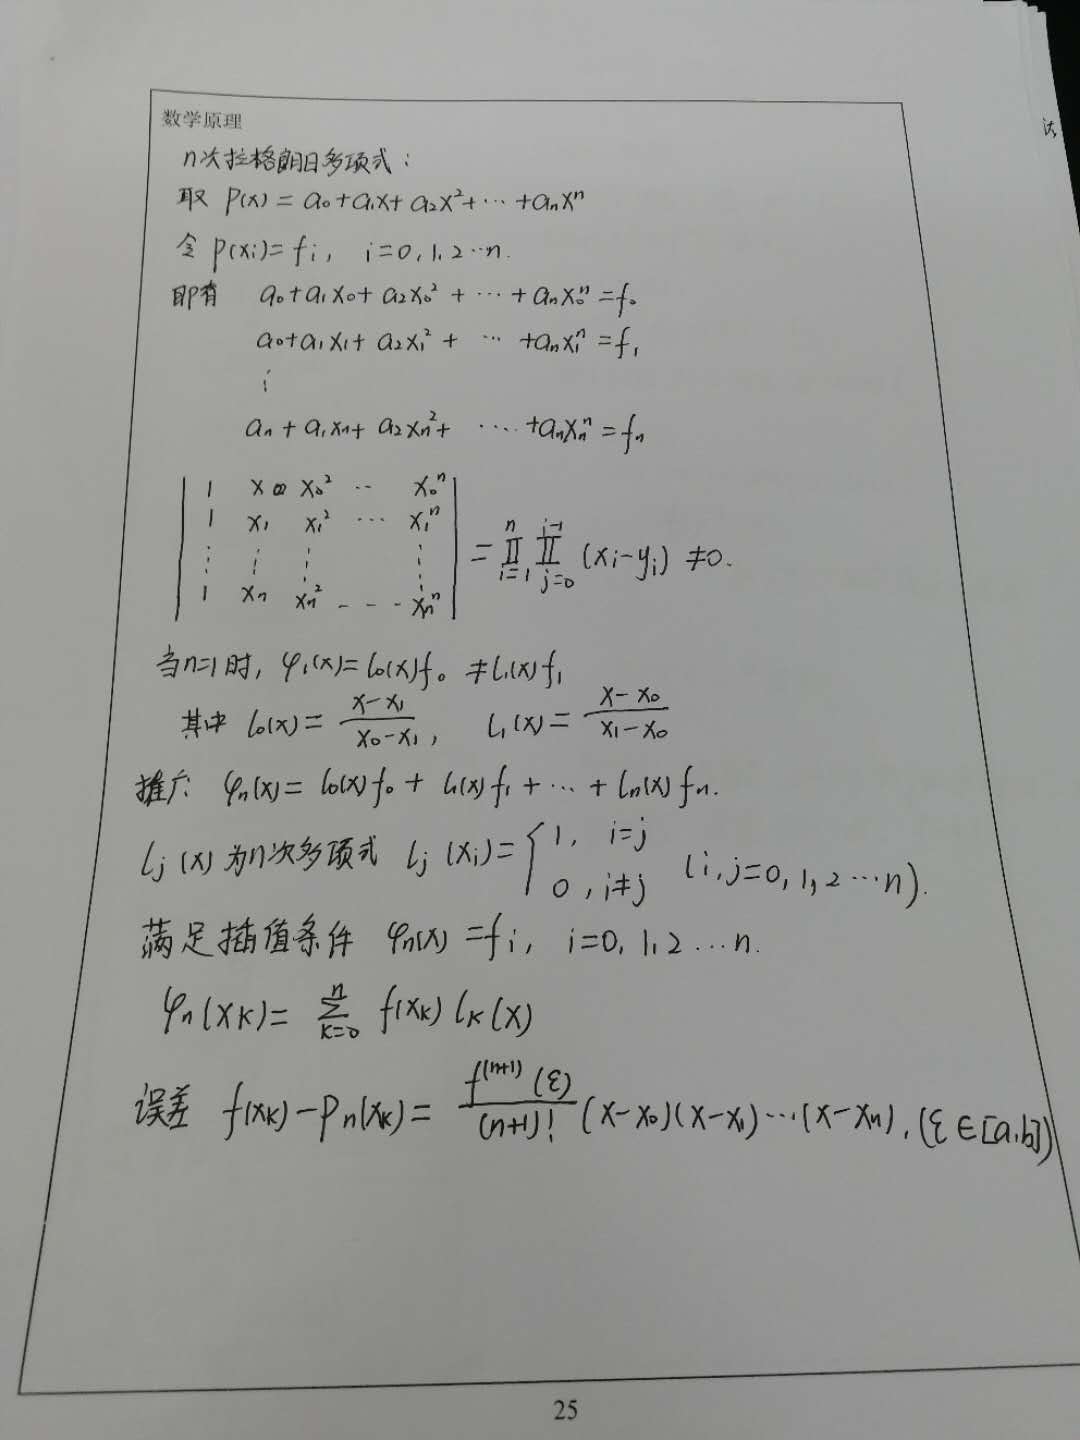 数学原理
n次拉格朗日多项式:
取 P(x) = a₀+a₁x+a₂x²+⋯+aₙxⁿ
令 p(xᵢ)=fᵢ, i=0,1,2⋯n.
即有 a₀+a₁x₀+a₂x₀²+⋯+aₙx₀ⁿ=f₀
a₀+a₁x₁+a₂x₁²+ ⋯ +aₙx₁ⁿ=f₁
⋮
aₙ+a₁xₙ+a₂xₙ²+ ⋯⋅+aₙxₙⁿ=fₙ
| 1 x₀ x₀² ⋯ x₀ⁿ |
| 1 x₁ x₁² ⋯ x₁ⁿ |
| ⋮ ⋮ ⋮ ⋮ | = ∏ᵢ₌₁ⁿ ∏ⱼ₌₀ⁱ⁻¹ (xᵢ-yᵢ) ≠0.
| 1 xₙ xₙ² --- xₙⁿ |
当n=1时, φ₁(x)=l₀(x)f₀ ≠l₁(x)f₁
其中 l₀(x)= (x-x₁)/(x₀-x₁), l₁(x)= (x-x₀)/(x₁-x₀)
推广: φₙ(x)= l₀(x)f₀ + l₁(x)f₁ + ⋯ + lₙ(x)fₙ.
lⱼ(x)为n次多项式 lⱼ(xᵢ)={1, i=j
0, i≠j (i,j=0,1,2⋯n).
满足插值条件 φₙ(x)=fᵢ, i=0,1,2⋯n.
φₙ(xₖ)= ∑ₖ₌₀ⁿ f(xₖ)lₖ(x)
误差 f(xₖ)-pₙ(xₖ)= f⁽ⁿ⁺¹⁾(ξ)/(n+1)! (x-x₀)(x-x₁)⋯(x-xₙ),(ξ∈[a,b])
25